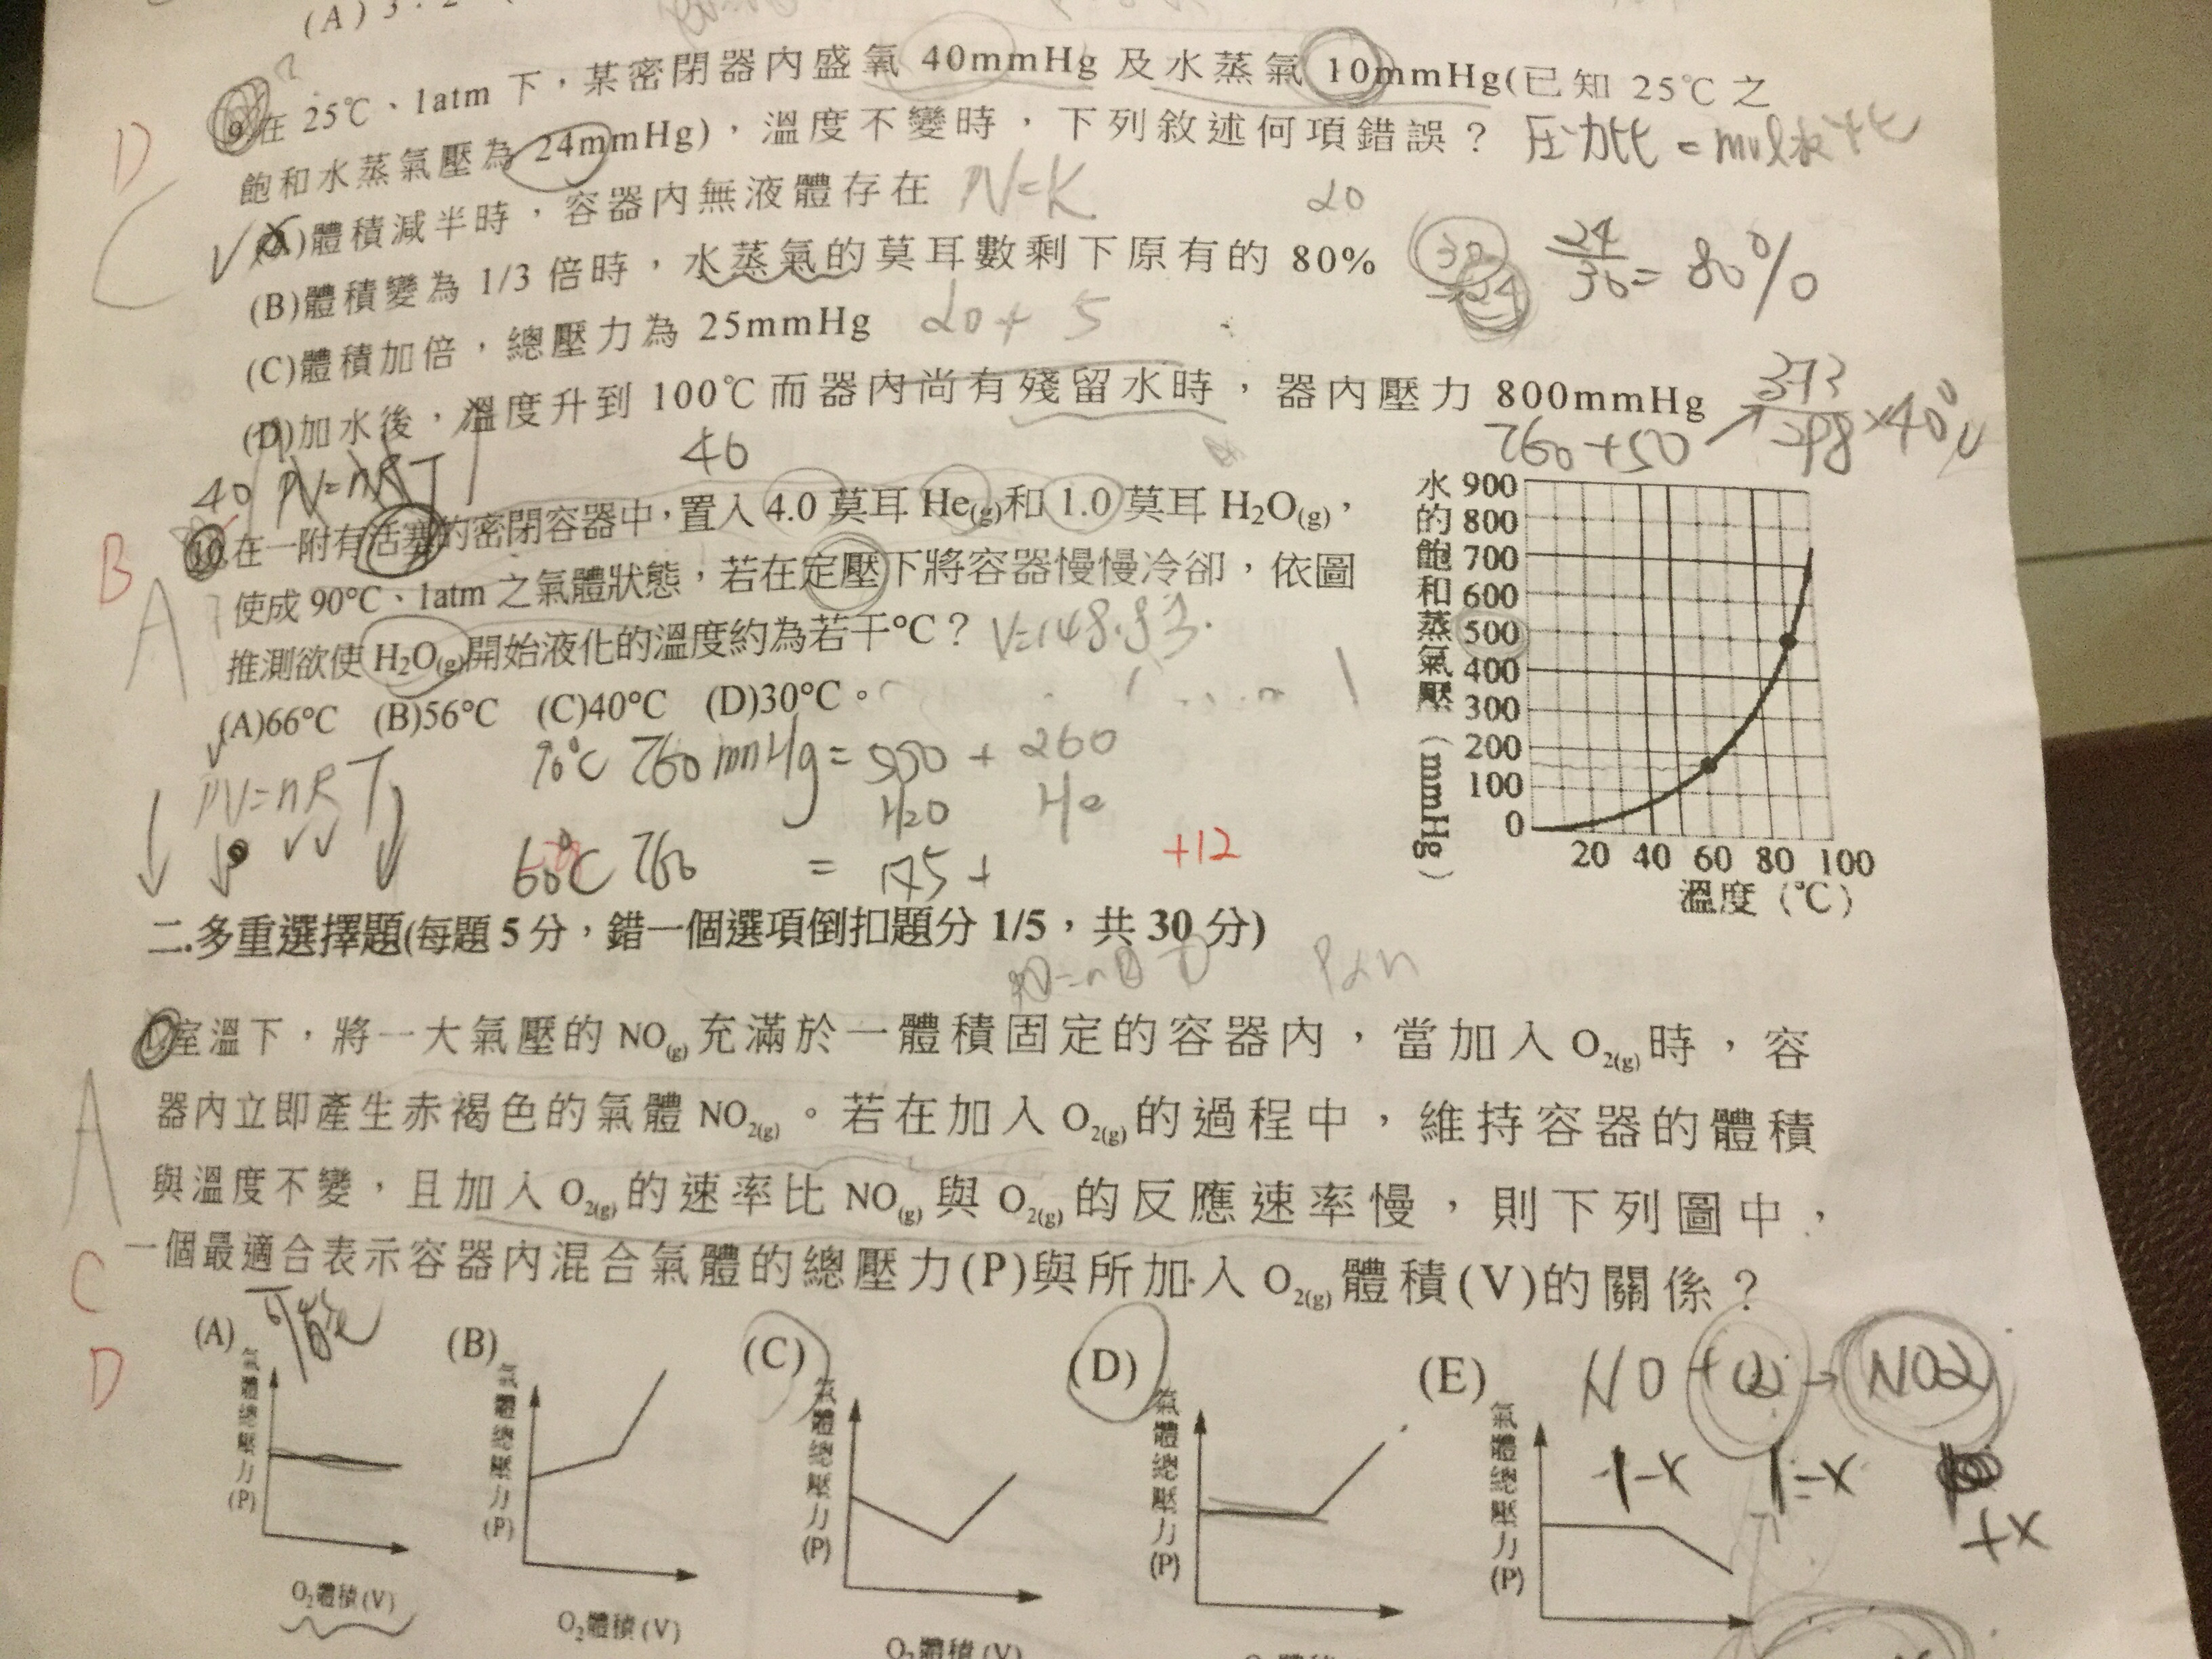 (A) 3：2
9.在 25℃、1atm 下，某密閉器內盛氧 40mmHg 及水蒸氣 10mmHg(已知 25℃之
飽和水蒸氣壓為 24mmHg)，溫度不變時，下列敘述何項錯誤？ 压力比 = mole 比
D
C
(A)體積減半時，容器內無液體存在 PV=K 20
(B)體積變為 1/3 倍時，水蒸氣的莫耳數剩下原有的 80% 30 →24 24/30 = 80%
(C)體積加倍，總壓力為 25mmHg 20+ 5
(D)加水後，溫度升到 100℃而器內尚有殘留水時，器內壓力 800mmHg
760+50 373/298×40
40 PV=nRT 40
10.在一附有活塞的密閉容器中，置入 4.0 莫耳 He(g)和 1.0 莫耳 H2O(g)，
使成 90°C、1atm 之氣體狀態，若在定壓下將容器慢慢冷卻，依圖
推測欲使 H2O(g)開始液化的溫度約為若干°C？ V=148.83.
B
A
(A)66°C (B)56°C (C)40°C (D)30°C。
90°C 760 mmHg = 500 + 260
H2O He
PV=nRT
60°C 760 = 175 +
+12
水的飽和蒸氣壓（mmHg）
900
800
700
600
500
400
300
200
100
0
20 40 60 80 100
溫度（℃）
二.多重選擇題(每題 5 分，錯一個選項倒扣題分 1/5，共 30 分)
PV=nRT P∝n
1.室溫下，將一大氣壓的 NO(g)充滿於一體積固定的容器內，當加入 O2(g)時，容
器內立即產生赤褐色的氣體 NO2(g)。若在加入 O2(g)的過程中，維持容器的體積
與溫度不變，且加入 O2(g)的速率比 NO(g)與 O2(g)的反應速率慢，則下列圖中，
一個最適合表示容器內混合氣體的總壓力(P)與所加入 O2(g)體積(V)的關係？
A
C
D
可能
(A) (B) (C) (D) (E) NO + O2 → NO2
1-x 1-x +x
氣體總壓力(P)
O2體積(V)
氣體總壓力(P)
O2體積(V)
氣體總壓力(P)
O2體積(V)
氣體總壓力(P)
氣體總壓力(P)